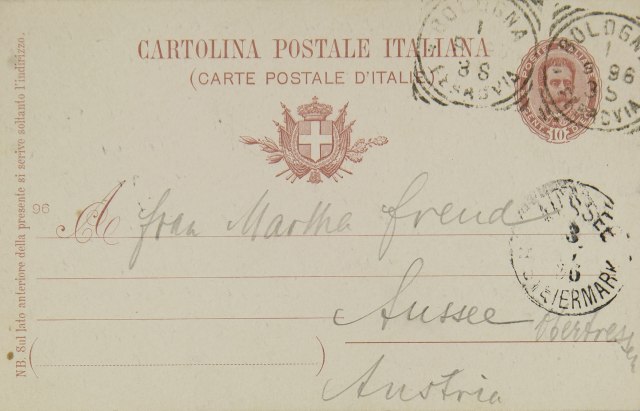 CARTOLINA POSTALE ITALIANA
(CARTE POSTALE D'ITALIE)
BOLOGNA
1
96
8 S
FERROVIA
BOLOGNA
1
96
8 S
FERROVIA
10
NB. Sul lato anteriore della presente si scrive soltanto l'indirizzo.
96
A Frau Martha Freud
Aussee Obertressen
Austria
AUSSEE
3
STEIERMARK